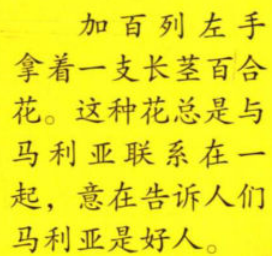 加百列左手
拿着一支长茎百合
花。这种花总是与
马利亚联系在一
起，意在告诉人们
马利亚是好人。